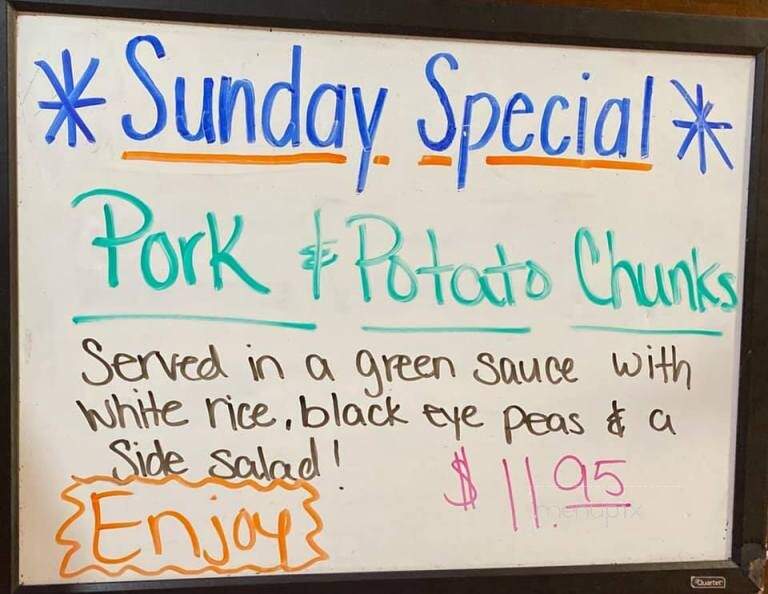 * Sunday Special *
Pork & Potato Chunks
Served in a green sauce with
white rice, black eye peas & a
side salad!
$11.95
Enjoy
menupix
Quartet